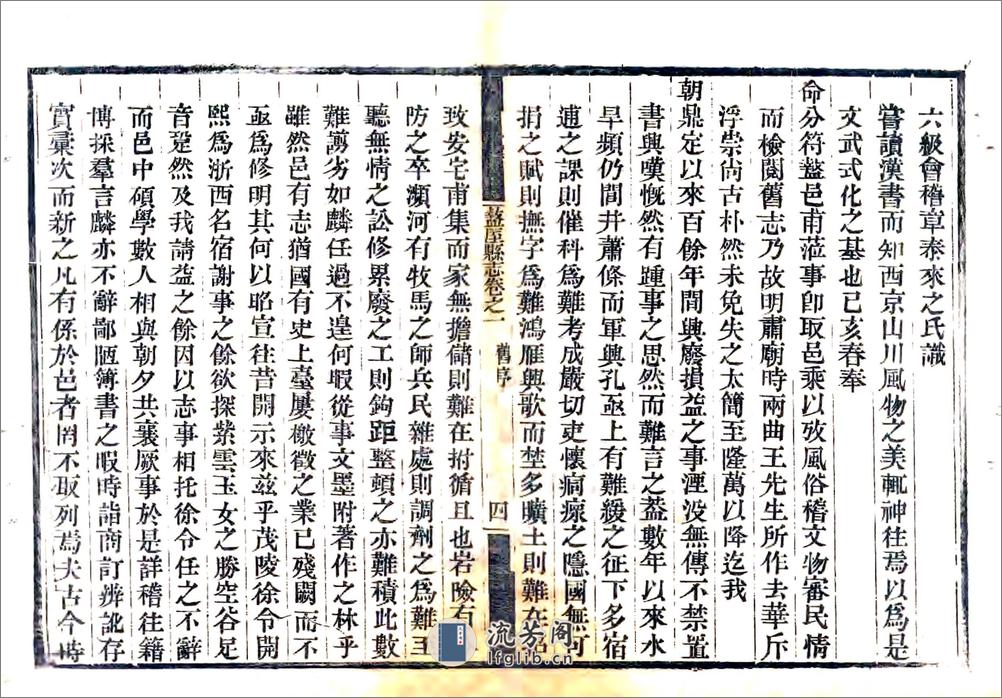 六級會稽章泰來之氏識
嘗讀漢書而知西京山川風物之美輒神往焉以爲是
文武式化之基也已亥春奉
命分符盩邑甫蒞事卽取邑乘以攷風俗稽文物審民情
而檢閱舊志乃故明肅廟時兩曲王先生所作去華斥
浮崇尚古朴然未免失之太簡至隆萬以降迄我
朝鼎定以來百餘年間興廢損益之事湮没無傳不禁置
書興嘆慨然有踵事之思然而難言之葢數年以來水
旱頻仍閭井蕭條而軍興孔亟上有難緩之征下多宿
逋之課則催科爲難考成嚴切吏懷痌瘝之隱國無可
捐之賦則撫字爲難鴻雁興歌而埜多曠土則難在
盩厔縣志卷之一 舊序 四
致安宅甫集而家無擔儲則難在拊循且也岩險有
防之卒瀕河有牧馬之師兵民雜處則調劑之爲難
聽無情之訟修累廢之工則鉤距整頓之亦難積此數
難謭劣如麟任過不遑何暇從事文墨附著作之林乎
雖然邑有志猶國有史上臺屢檄徵之業已殘闕而不
亟爲修明其何以昭宣往昔開示來茲乎茂陵徐令開
熙爲浙西名宿謝事之餘欲探紫雲玉女之勝空谷足
音跫然及我請益之餘因以志事相托徐令任之不辭
而邑中碩學數人相與朝夕共襄厥事於是詳稽往籍
博採羣言麟亦不辭鄙陋簿書之暇時詣商訂辨訛存
實彙次而新之凡有係於邑者罔不取列焉夫古今時
流芳阁
lfglib.cn